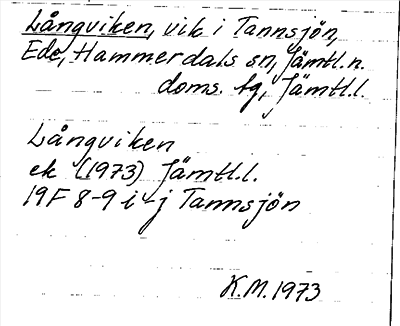 Långviken, vik i Tannsjön,
Ede, Hammerdals sn, Jämtl. n.
doms. fg, Jämtl.l.
Långviken
ek (1973) Jämtl.l.
19F 8-9 i-j Tannsjön
K.M. 1973